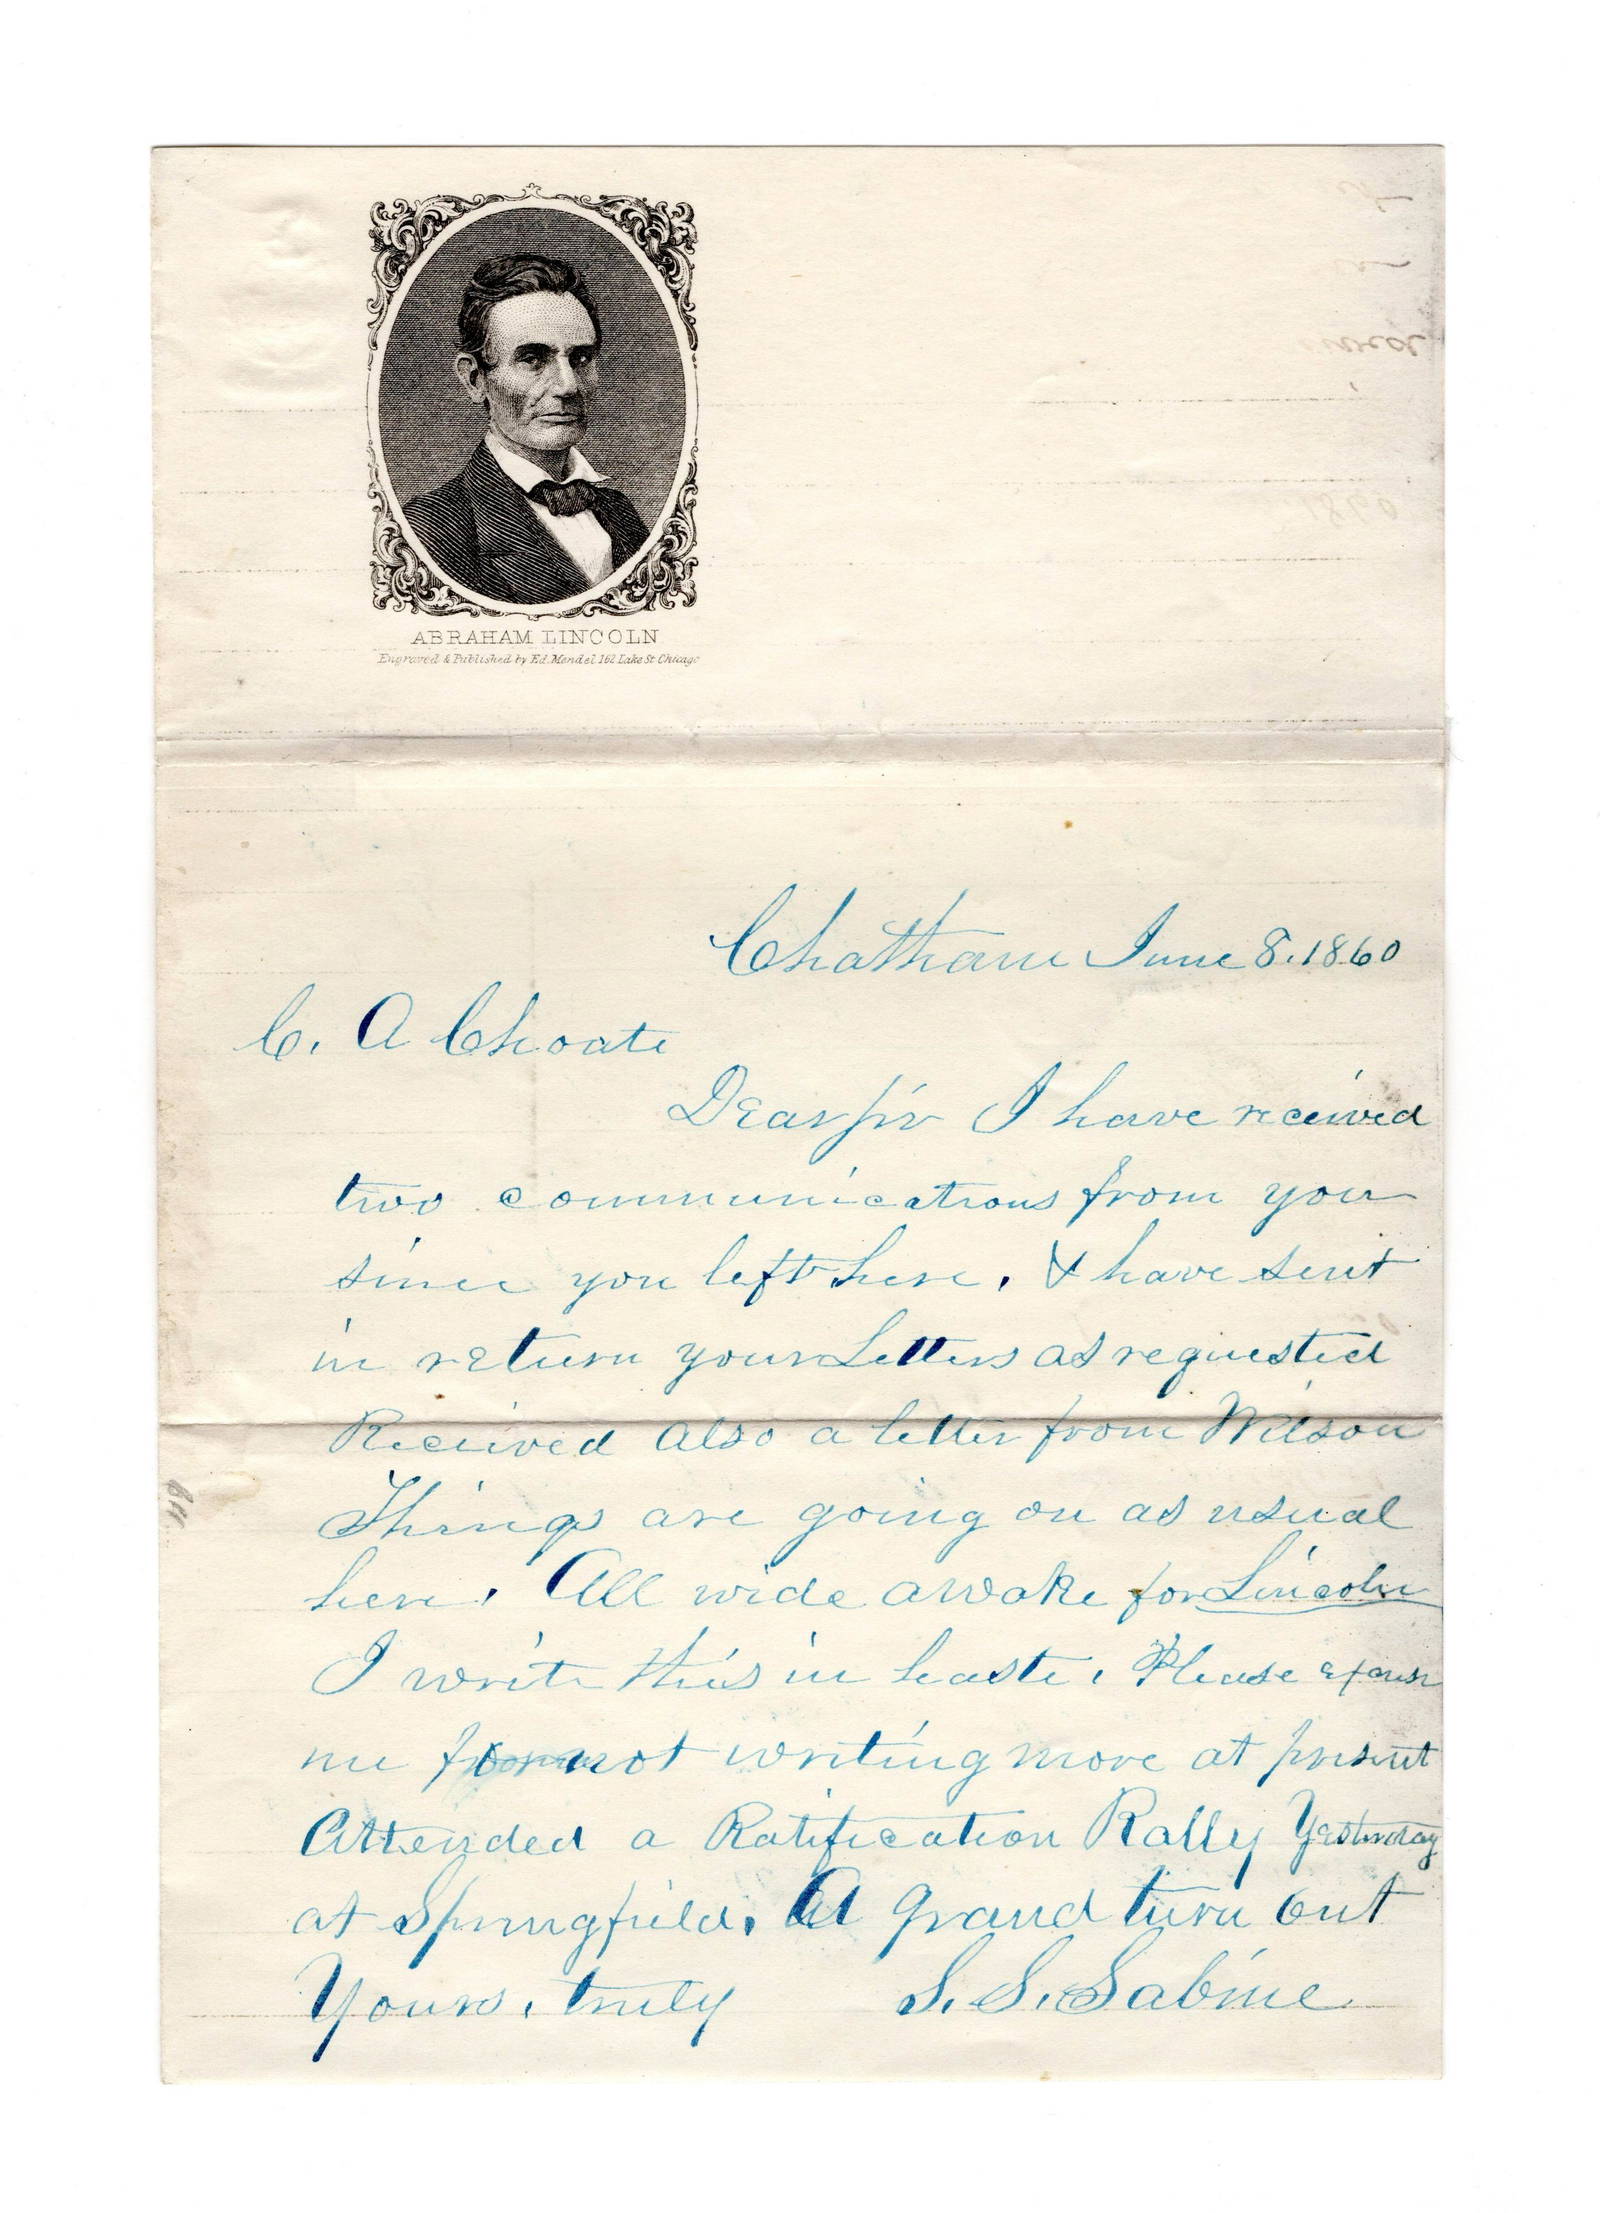 ABRAHAM LINCOLN
Engraved & Published by Ed. Mendel 162 Lake St. Chicago
Chatham June 8. 1860
C. A Choate
Dear sir I have received
two communications from you
since you left here. & have sent
in return your Letters as requested
Received also a letter from Wilson
Things are going on as usual
here. All wide awake for Lincoln
I write this in haste. Please excuse
me for not writing more at present
Attended a Ratification Rally Yesterday
at Springfield. A grand turn out
Yours, truly S. S. Sabine